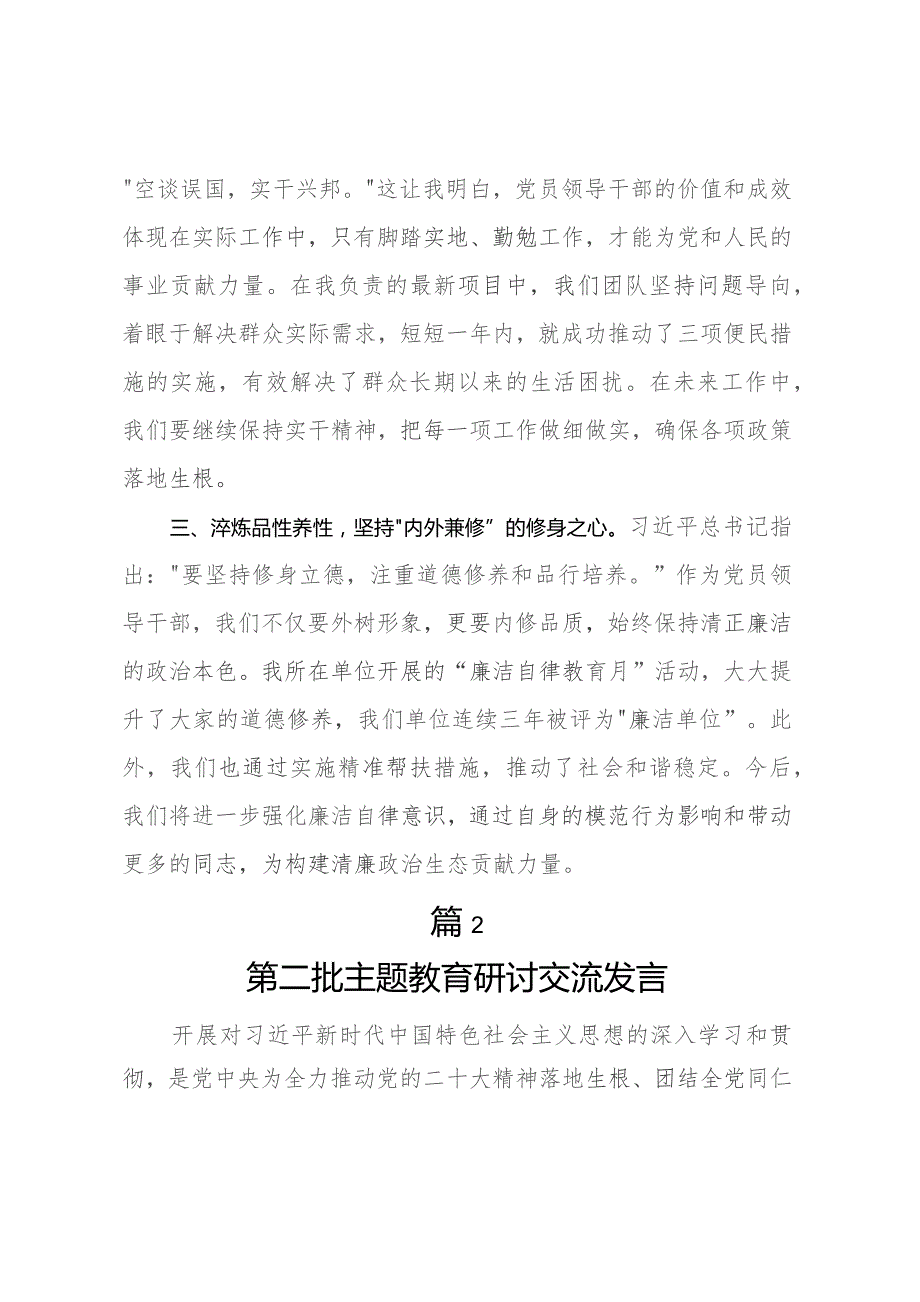 "空谈误国，实干兴邦。"这让我明白，党员领导干部的价值和成效
体现在实际工作中，只有脚踏实地、勤勉工作，才能为党和人民的
事业贡献力量。在我负责的最新项目中，我们团队坚持问题导向，
着眼于解决群众实际需求，短短一年内，就成功推动了三项便民措
施的实施，有效解决了群众长期以来的生活困扰。在未来工作中，
我们要继续保持实干精神，把每一项工作做细做实，确保各项政策
落地生根。
三、淬炼品性养性，坚持"内外兼修”的修身之心。习近平总书记指
出："要坚持修身立德，注重道德修养和品行培养。”作为党员领
导干部，我们不仅要外树形象，更要内修品质，始终保持清正廉洁
的政治本色。我所在单位开展的“廉洁自律教育月”活动，大大提
升了大家的道德修养，我们单位连续三年被评为"廉洁单位”。此
外，我们也通过实施精准帮扶措施，推动了社会和谐稳定。今后，
我们将进一步强化廉洁自律意识，通过自身的模范行为影响和带动
更多的同志，为构建清廉政治生态贡献力量。
篇2
第二批主题教育研讨交流发言
开展对习近平新时代中国特色社会主义思想的深入学习和贯
彻，是党中央为全力推动党的二十大精神落地生根、团结全党同仁